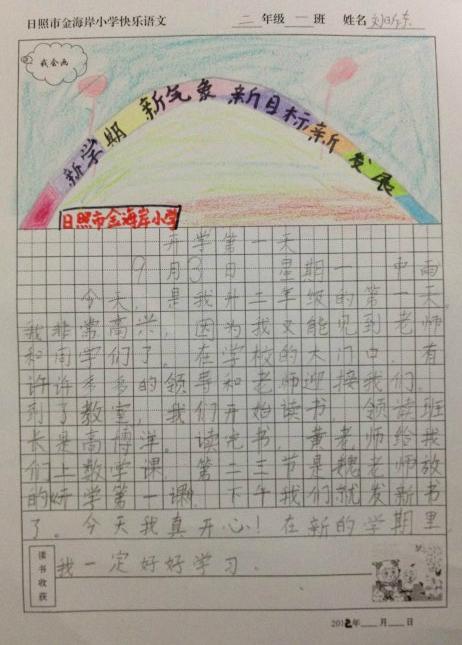 日照市金海岸小学快乐语文 二年级一班 姓名
我会画
新学期 新气象 新目标 新发展
日照市金海岸小学
开学第一天
9月3日 星期一 中雨
今天，是我升二年级的第一天。
我非常高兴，因为我又能见到老师
和同学们了。在学校的大门口，有
许许多多的领导和老师迎接我们。
到了教室，我们开始读书。领读班
长是高博洋。读完书，黄老师给我
们上数学课，第二三节是魏老师放
的开学第一课，下午我们就发新书
了。今天我真开心！在新的学期里
我一定好好学习。
读书收获
2012年 月 日